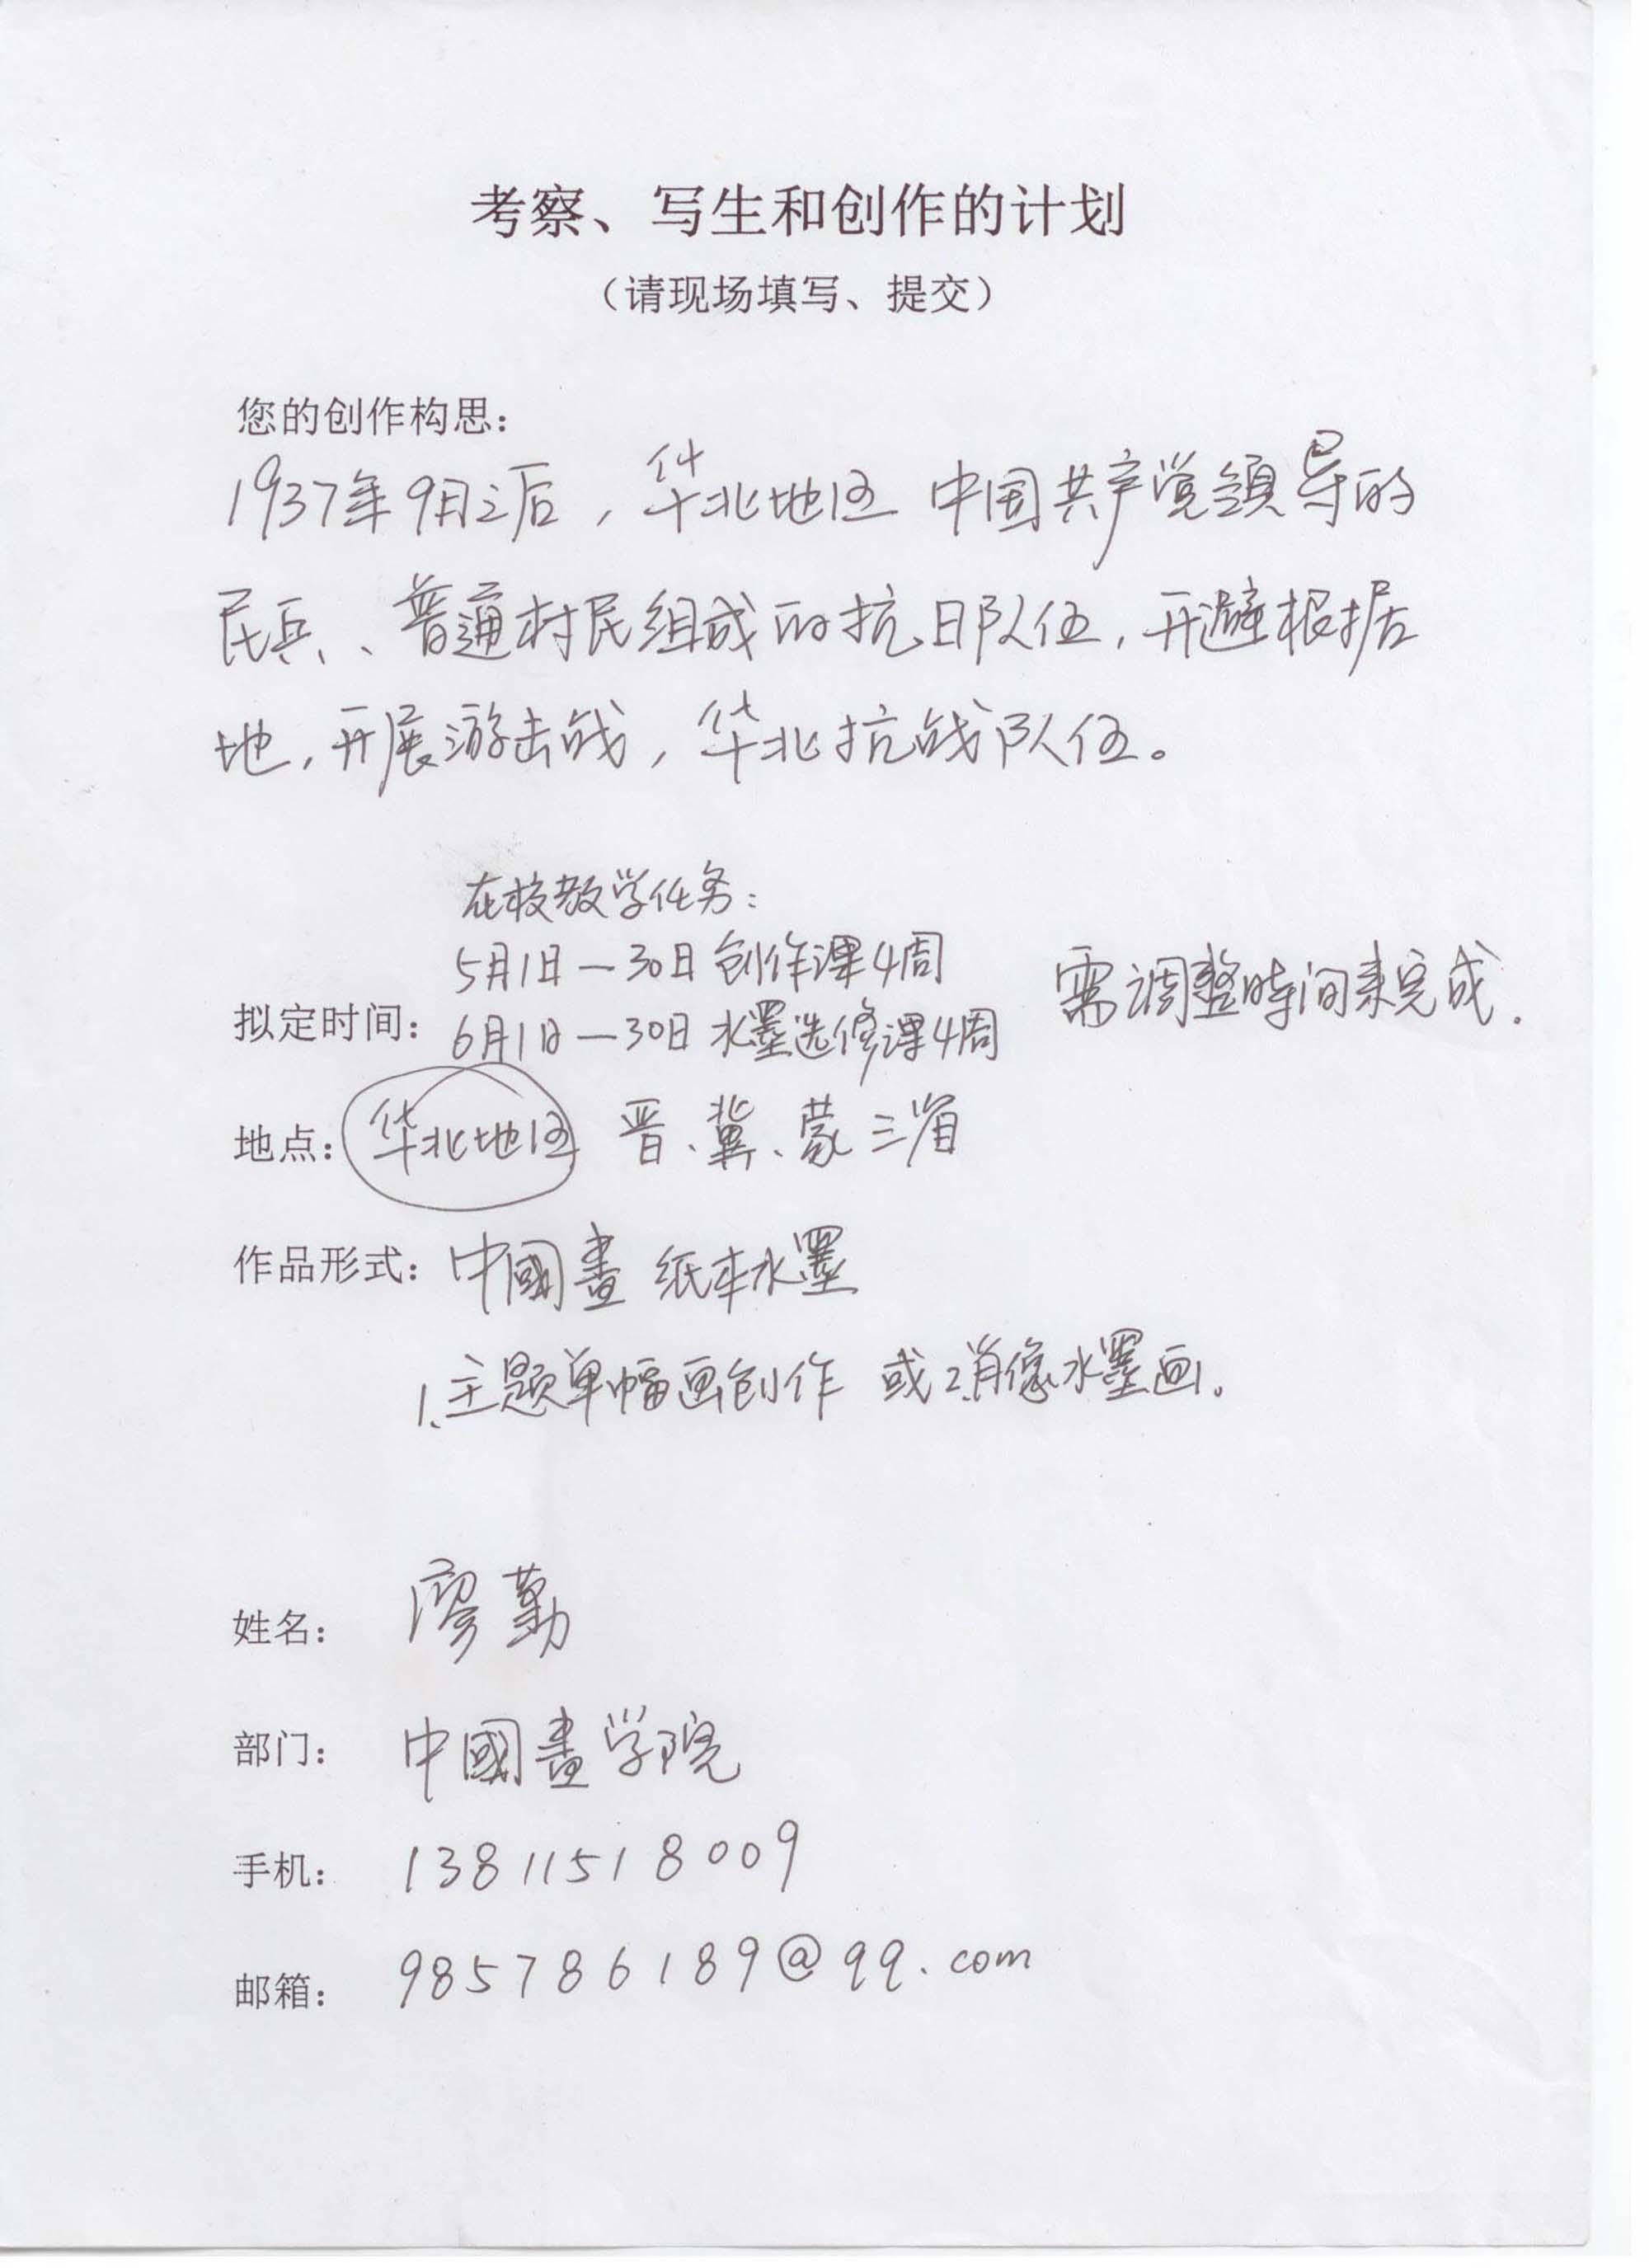 考察、写生和创作的计划
（请现场填写、提交）
您的创作构思：
1937年9月之后，华北地区 中国共产党领导的
民兵、普通村民组成的抗日队伍，开避根据
地，开展游击战，华北抗战队伍。
在校教学任务：
5月1日—30日 创作课4周
需调整時间来完成.
拟定时间：6月1日—30日 水墨选修课4周
地点：华北地区 晋、冀、蒙三省
作品形式：中國畫 纸本水墨
1、主题单幅画创作 或2、肖像水墨画。
姓名：廖勤
部门：中國畫学院
手机：13811518009
邮箱：985786189@qq.com